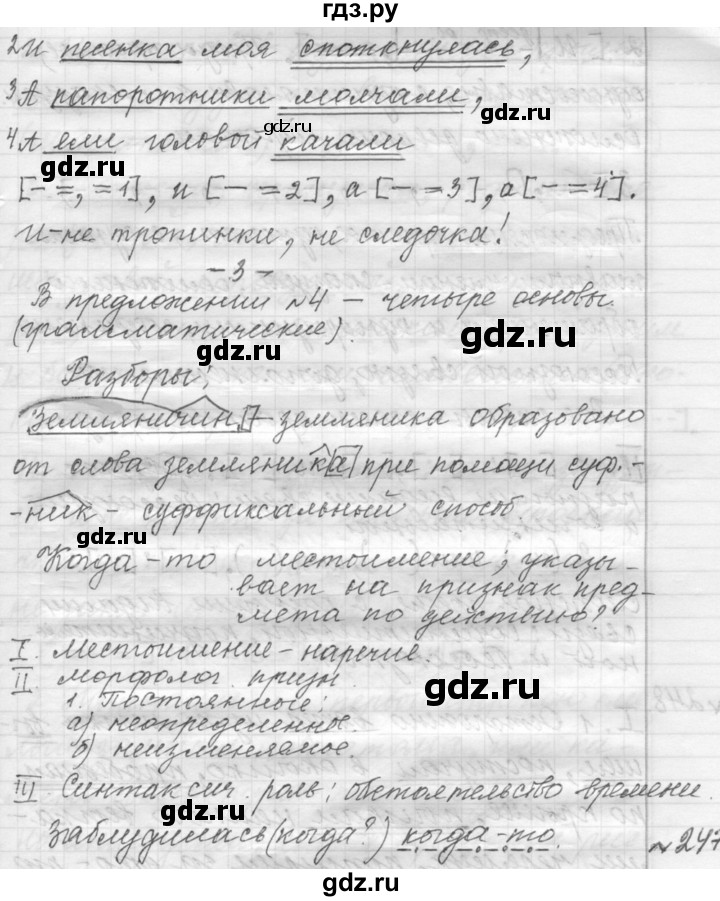 гдз.ру
2И песенка моя споткнулась,
3А папоротники молчали,
gdz.ru
4А ели головой качали
gdz.ru
[– =, =1], и [– =2], а [– =3], а [– =4].
И-не тропинки, не следочка!
-3-
В предложении №4 – четыре основы
(грамматические).
gdz.ru
gdz.ru
Разборы:
Земляничин – земляника образовано
от слова земляника при помощи суф.-
-ник- – суффиксальный способ.
gdz.ru
Когда-то (местоимение; указы-
вает на признак пред-
мета по действию?
I. Местоимение-наречие.
II морфолог. призн.
gdz.ru
1. Постоянные:
а) неопределенное.
б) неизменяемое.
gdz.ru
III Синтаксич. роль: обстоятельство времени.
Заблудилась (когда?) когда-то.
№247
gdz.ru
gdz.ru